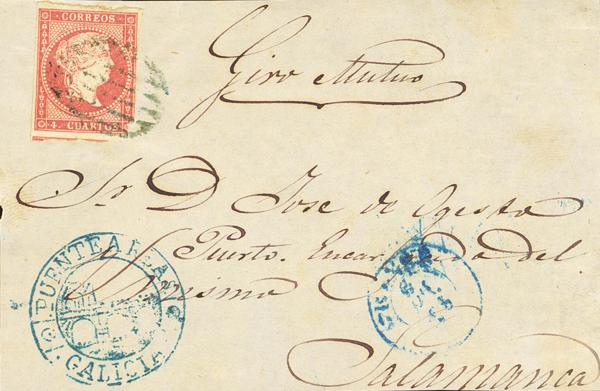 CORREOS
4. CUARTOS
Giro Mutuo
Sr D Jose de
Puerto. Encargado del
mismo
Salamanca
PUENTEAREAS
GALICIA